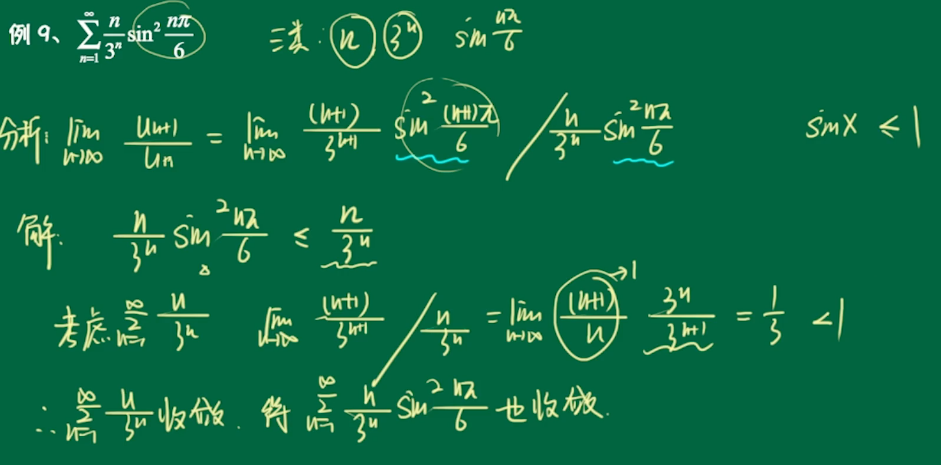 例9、 \sum_{n=1}^{\infty} \frac{n}{3^n} \sin^2 \frac{n\pi}{6} 三类: n 3^n sin \frac{nπ}{6}
分析: \lim_{n→∞} \frac{u_{n+1}}{u_n} = \lim_{n→∞} \frac{(n+1)}{3^{n+1}} sin^2 \frac{(n+1)π}{6} / \frac{n}{3^n} sin^2 \frac{nπ}{6} sin x ≤ 1
解: \frac{n}{3^n} sin^2 \frac{nπ}{6} ≤ \frac{n}{3^n}
考虑 \sum_{n=1}^{∞} \frac{n}{3^n} \lim_{n→∞} \frac{(n+1)}{3^{n+1}} / \frac{n}{3^n} = \lim_{n→∞} \frac{(n+1)}{n} →1 \frac{3^n}{3^{n+1}} = \frac{1}{3} < 1
∴ \sum_{n=1}^{∞} \frac{n}{3^n} 收敛. 得 \sum_{n=1}^{∞} \frac{n}{3^n} sin^2 \frac{nπ}{6} 也收敛.